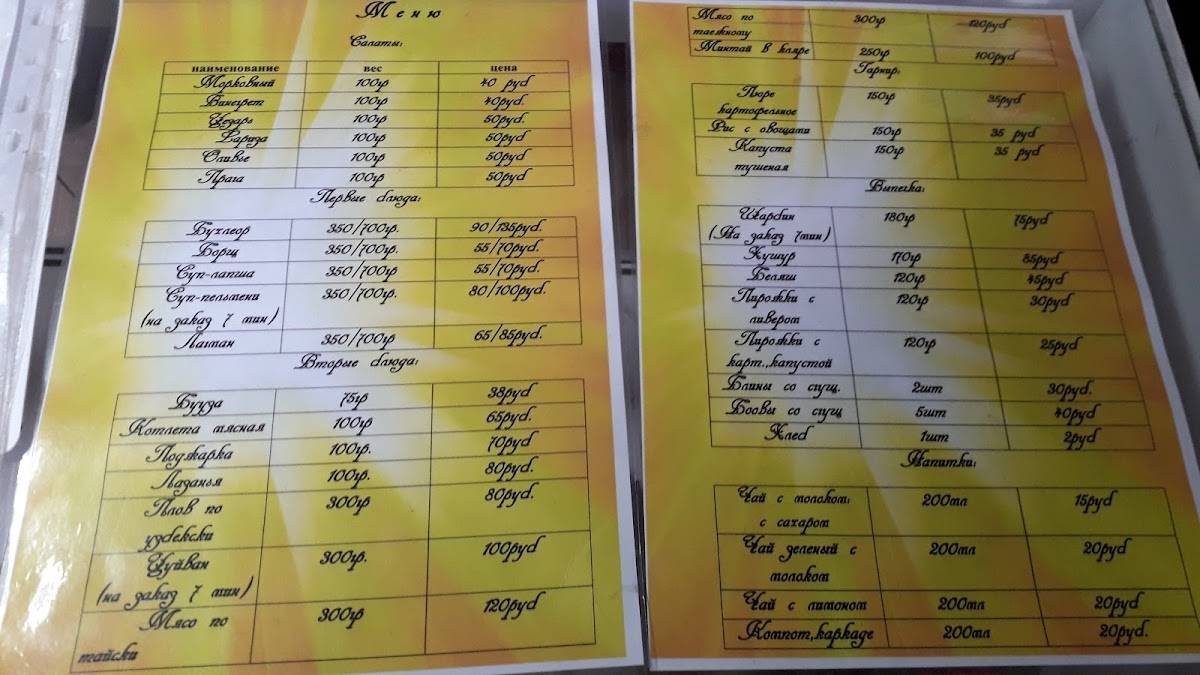 Меню
Салаты:
наименование вес цена
Морковный 100гр 40 руб
Винегрет 100гр 40руб.
Цезарь 100гр 50руб.
Фариза 100гр 50руб
Оливье 100гр 50руб
Прага 100гр 50руб
Первые блюда:
Бухлеор 350/700гр. 90/135руб.
Борщ 350/700гр 55/70руб.
Суп-лапша 350/700гр 55/70руб.
Суп-пельмени 350/700гр. 80/100руб.
(на заказ 7 мин)
Лагман 350/700гр 65/85руб.
Вторые блюда:
Бууза 75гр 38руб
Котлета мясная 100гр 65руб.
Поджарка 100гр. 70руб
Лазанья 100гр. 80руб.
Плов по 300гр 80руб.
узбекски
Цуйван 300гр. 100руб
(на заказ 7 мин)
Мясо по 300гр 120руб
тайски
Мясо по 300гр 120руб
таежному
Минтай в кляре 250гр 100руб
Гарнир:
Пюре 150гр 35руб
картофельное
Рис с овощами 150гр 35 руб
Капуста 150гр 35 руб
тушеная
Выпечка:
Шарбин 180гр 75руб
(На заказ 7мин)
Хушур 170гр 85руб
Беляш 120гр 45руб
Пирожки с 120гр 30руб
ливером
Пирожки с 120гр 25руб
карт.,капустой
Блины со сгущ. 2шт 30руб.
Боовы со сгущ 5шт 40руб
Хлеб 1шт 2руб
Напитки:
Чай с молоком: 200мл 15руб
с сахаром
Чай зеленый с 200мл 20руб
молоком
Чай с лимоном 200мл 20руб
Компот,каркаде 200мл 20руб.